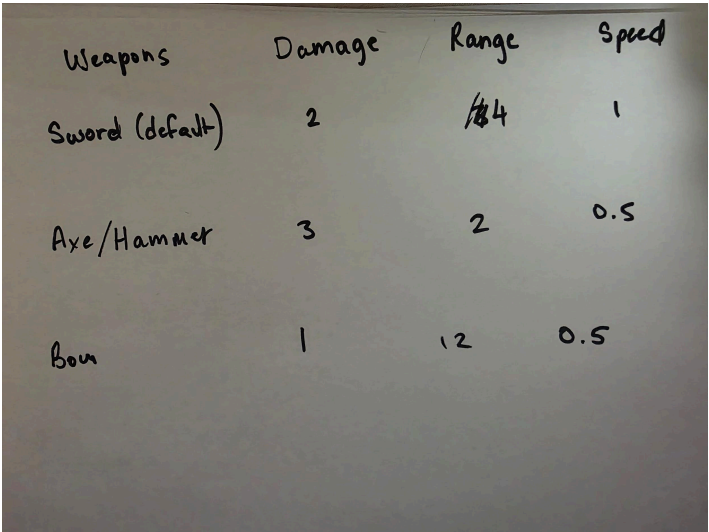 Weapons Damage Range Speed
Sword (default) 2 4 1
Axe/Hammer 3 2 0.5
Bow 1 12 0.5